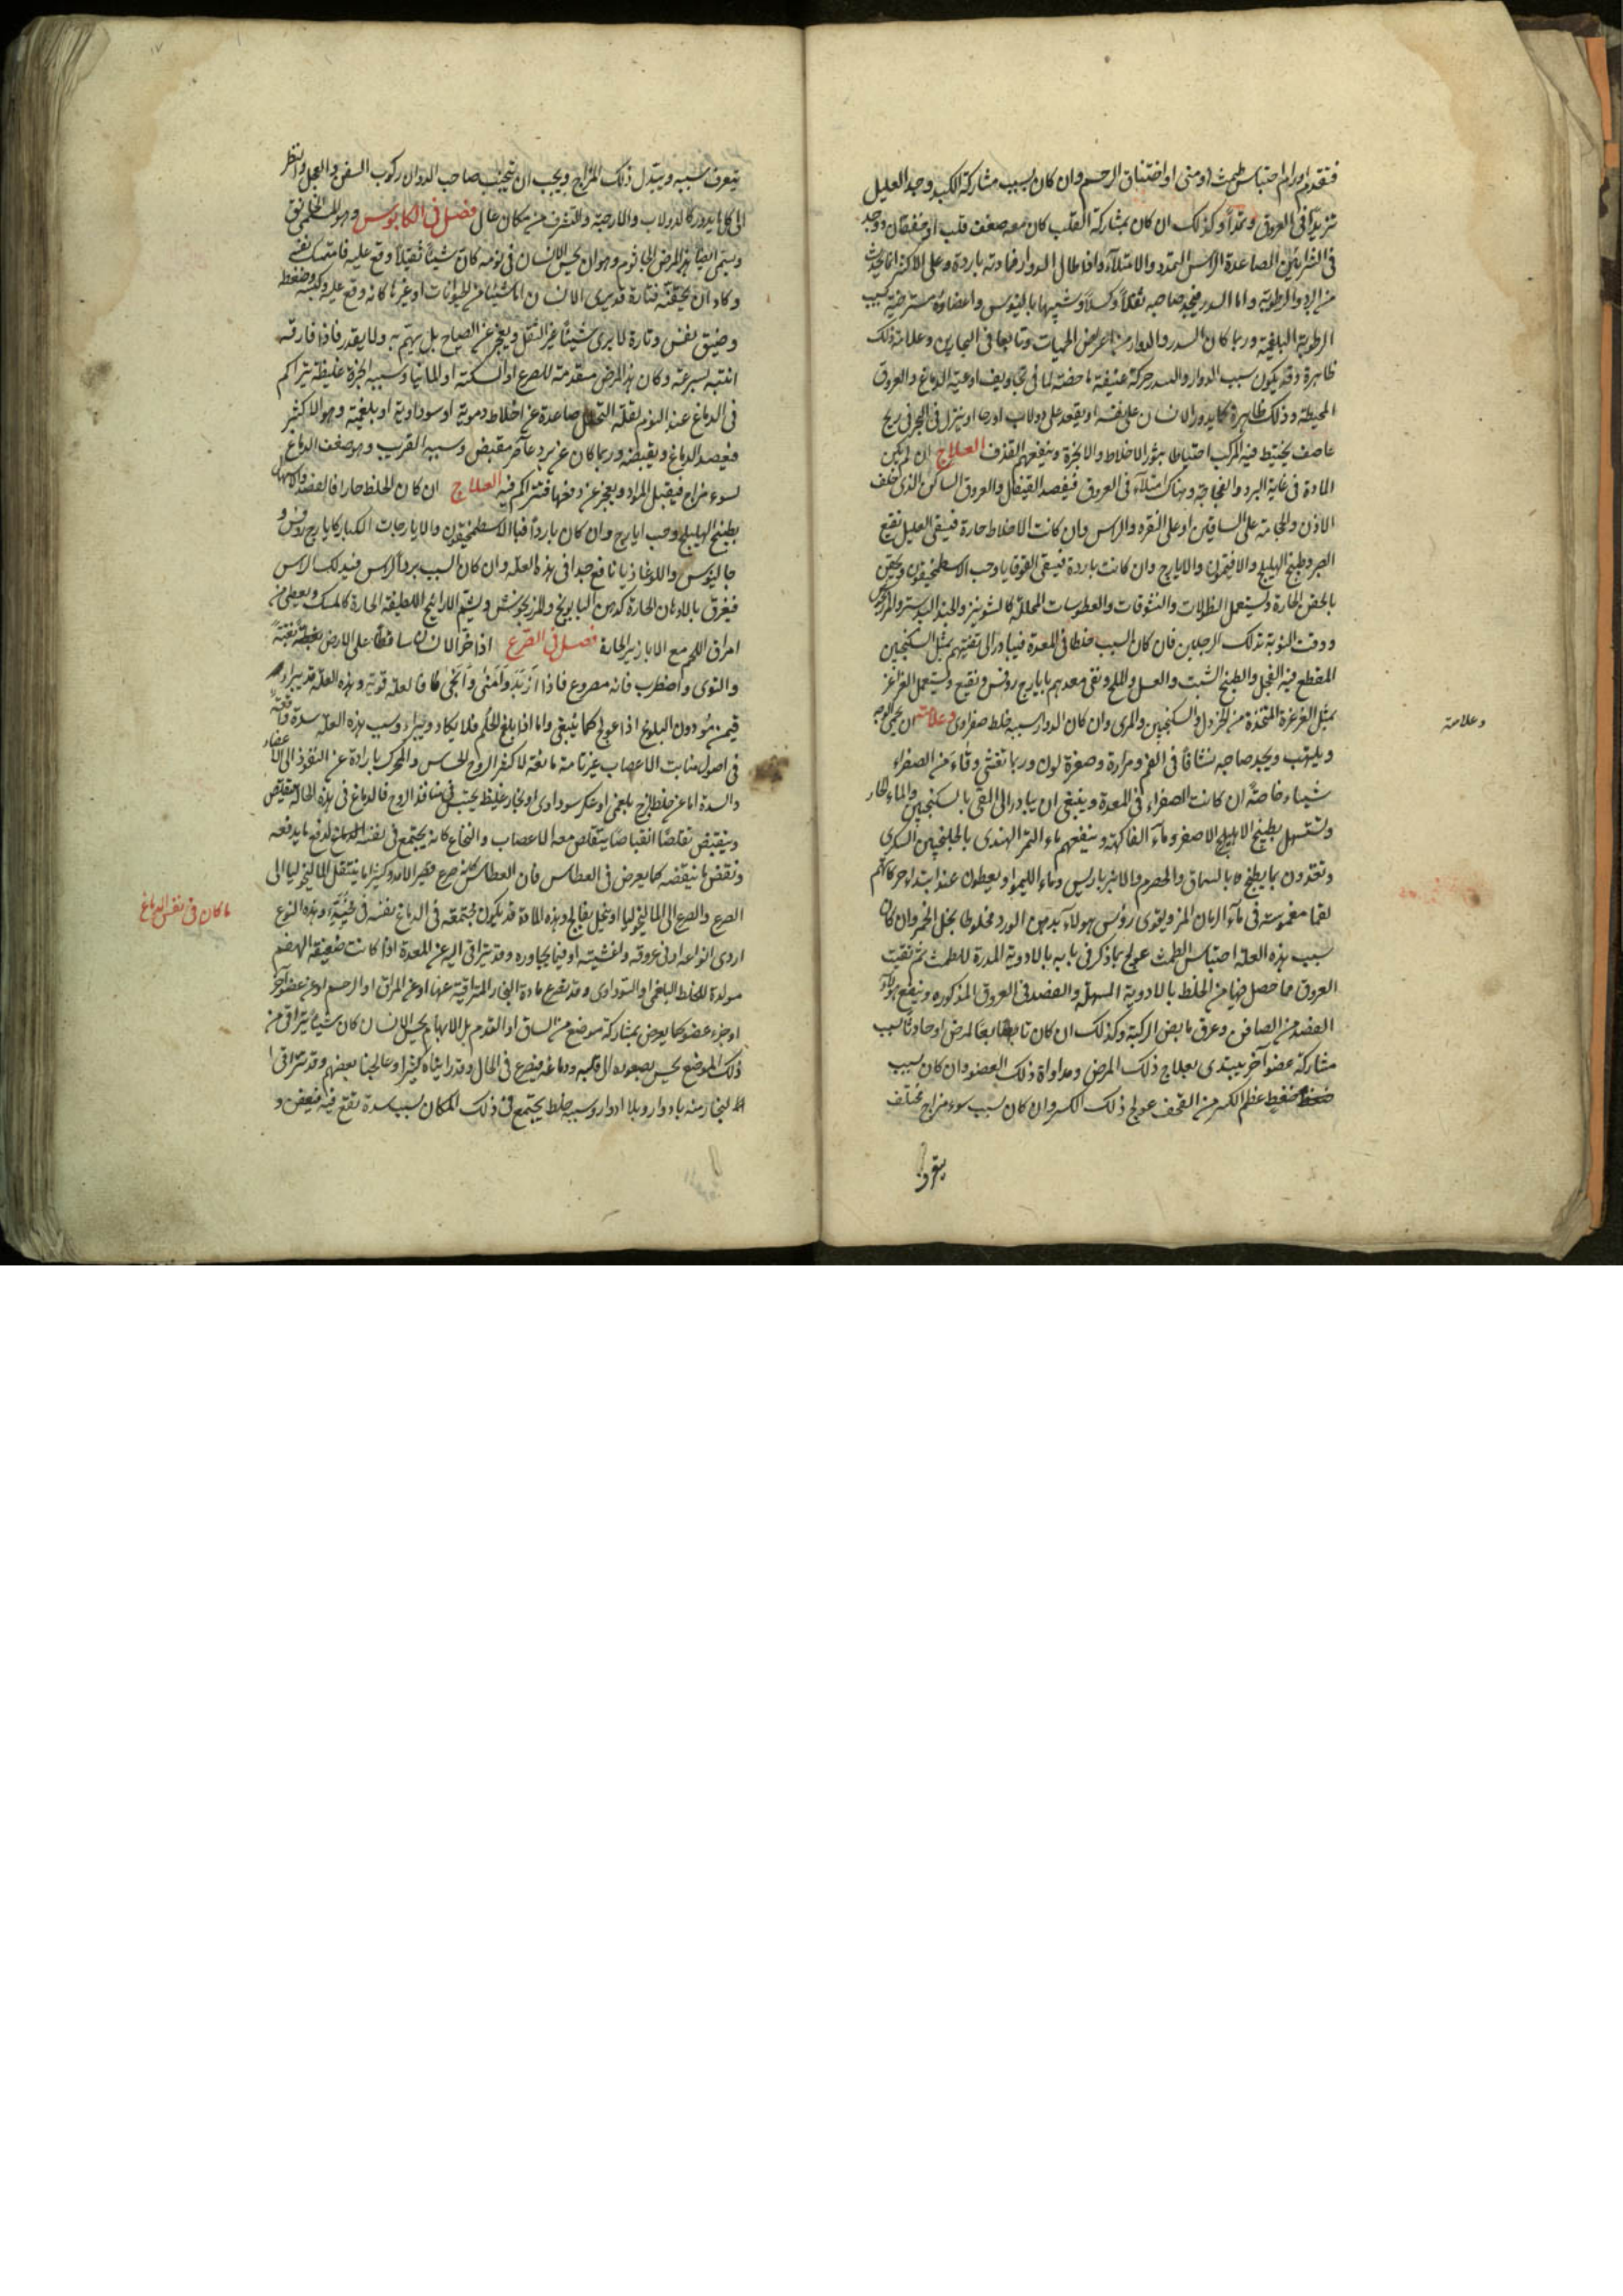 فتقدم اورام احتباس طمث او منى او اختناق الرحم وان كان بسبب مشاركة الكبد وجد العليل
تزيدا فى العروق وتمددا وكذلك ان كان بمشاركة القلب كان معه ضعف قلب او خفقان ووجد
فى الشريانين الصاعدة الراس التمدد والامتلاء واذا طال الدوار فمادته باردة وعلى الاكثر انما يحدث
من البرد والرطوبة واما السدر فيجد صاحبه ثقلا وكسلا وشبيها بالنوس واعضاءه مسترخية بسبب
الرطوبة البلغمية وربما كان السدر والدوار من اعراض الحميات وتابعا فى البحارين وعلامة ذلك
ظاهرة وقد يكون سبب الدوار والسدر حركة عنيفة ماحضة لما فى تجاويف اوعية الدماغ والعروق
المحيطة وذلك ظاهرة كما يدور الانسان على نفسه او يقعد على دولاب او رحا او ينزل فى البحر فى ريح
عاصف يختبط فيه المركب اختباطا يثور الاخلاط والابخرة وينفعهم القذف العلاج ان لم يكن
المادة فى غاية البرد والفجاجة وهناك امتلاء فى العروق فيفصد القيفال والعروق الساكن الذى خلف
الاذن والحجامة على الساقين او على النقره والراس وان كانت الاخلاط حارة فيسقى العليل نقيع
الصبر وطبيخ الهليلج والافتيمون والايارج وان كانت باردة فيسقى القوقايا وحب الاسطمخيقون ويحقن
بالحقن الحارة ويستعمل النطولات والنشوقات والعطوسات المحللة كالشونيز والجندبيدستر والمرزنجوش
ووقت النوبة تدلك الرجلين فان كان السبب خلطا فى المعدة فيبادر الى تقيتهم بمثل السكنجبين
المقطع فيه الفجل والطبيخ الشبت والعسل والملح ونقى معدهم بايارج روفس ونقيع ويستعمل الغراغر
بمثل الغرغرة المتخذة من الخردل والسكنجبين والمرى وان كان الدوار سببه خلط صفراوى وعلامته ان يحمى الوجه
وعلامته
ويلتهب ويجد صاحبه نشافا فى الفم ومرارة وصفرة لون وربما تغثى وقاء من الصفراء
شيئا وخاصة ان كانت الصفراء فى المعدة وينبغى ان يبادر الى القى بالسكنجبين والماء الحار
وتستسهل بطبيخ الاهليلج الاصفر وماء الفاكهة وينفعهم ماء التمر الهندى بالجلنجبين السكرى
وتغتذون بما يطبخ بالسماق والحصرم والانبرباريس وماء الليموا ويعطون عند ابتداء حركاتهم
لقما مغموسة فى ماء الرمان المز ويقوى رؤس هولاء بدهن الورد مخلوطا بخل الخمر وان كان
سبب هذه العلة احتباس الطمث عولج بما ذكر فى بابه بالادوية المدرة للطمث ثم نقيت
العروق مما حصل فيها من الخلط بالادوية المسهلة والفصد فى العروق المذكوره وينفع هولاء
الفصد من الصافن وعرق مابض الركبة وكذلك ان كان تابعا لمرض او حادثا بسبب
مشاركة عضو آخر يبتدى بعلاج ذلك المرض ومداواة ذلك العضو وان كان بسبب
ضغط عظم الكسر من القحف عولج ذلك الكسر وان كان بسبب سوء مزاج مختلف
يتعرف سببه ويبتدل ذلك المزاج ويجب ان يتجنب صاحب الدوار ركوب السفن والعجل والنظر
الى كل ما يدور كالدولاب والارحية والتشرف من مكان عال فصل فى الكابوس وهو الخانق
ويسمى ايضا هذا المرض الجاثوم وهو ان يحس الانسان فى نومه كان شيئا ثقيلا وقع عليه فامتسك نفسه
وكاد ان يخنقه فتارة قد يرى الانسان اما شيئا من الحيوانات او غيرها كانه وقع عليه وكبسه وضغطه
وضيق نفس وتارة لا يرى شيئا غير الثقل ويعجز عن الصياح بل يهم به ولا يقدر فاذا فارقه
انتبه بسرعة وكان هذا المرض مقدمة للصرع او السكتة او المانيا وسببه ابخرة غليظة تتراكم
فى الدماغ عند النوم لقلة التحلل صاعدة عن اخلاط دموية او سوداوية او بلغمية وهو الاكثر
فيعصر الدماغ ويقبضه وربما كان عن برد عاصر مقبض وسببه القريب وهو ضعف الدماغ
لسوء مزاج فيقبل المواد ويعجز عن دفعها فتتراكم فيه العلاج ان كان الخلط حارا فالفصد والاسهال
بطبيخ الهليلج وحب ايارج وان كان باردا فبالاسطمخيقون والايارجات الكبار كايارج روفس و
جالينوس واللوغاذيا نافع جدا فى هذه العلة وان كان السبب برد الراس فيدلك الراس
فيغرق بالادهان الحارة كدهن البابونج والمرزنجوش ويشتم الارائيح اللطيفة الحارة كالمسك ويعطى من
امراق اللحم مع الابازير الحارة فصل فى الصرع اذا خر الانسان ساقطا على الارض بغتة
والتوى واضطرب فانه مصروع فاذا ازبد وامنى وانجى كان العلة قوية وهذه العلة قد يبراء
فيمن هو دون البلوغ اذا عولج كما ينبغى واما اذا بلغ الحلم فلا يكاد ويبراء وسبب هذه العلة سدة واقعة
فى اصول منابت الاعصاب غير تامة مانعة لاكثر الروح الحساس والمحرك بارادة عن النفوذ الى الاعضاء
والسدة اما عن خلط لزج بلغمى او عكر سوداوى او بخار غليظ يحتبس فى منافذ الروح فالدماغ فى هذه الحالة يتقلص
وينقبض تقلصا انقباضا يتقلص معه الاعصاب والنخاع كانه يجتمع فى نفسه الدماغ لدفع ما يدفعه
ونفض ما ينفضه كما يعرض فى العطاس فان العطاس كانه صرع قصير الامد وكثيرا ما ينتقل الماليخوليا الى
الصرع والصرع الى الماليخوليا او ينحل بفالج وهذه المادة قد يكون مجتمعة فى الدماغ نفسه وهذه النوع
ما كان فى نفس الدماغ
اردى انواعه او فى عروقه واغشيته او فيما يجاوره وقد يتراقى اليه عن المعدة اذا كانت ضعيفة الهضم
مولدة للخلط البلغمى او السوداوى وقد يصرع مادة البخار المتراقية عنها او عن المراق او الرحم او عن عضو آخر
او جزء عضو كما يعرض بمشاركة موضع من الساق او القدم بل الابهام يحس الانسان كان شيئا يتراقى من
ذلك الموضع يحس بصعوده الى قلبه ودماغه فيصرع فى الحال وقد راينا كثيرا وعالجنا بعضهم وقد تتراقى
البخار منه بادوار وبلا ادوار وسببه خلط يجتمع فى ذلك المكان بسبب سدة تقع فيه فيعفن و